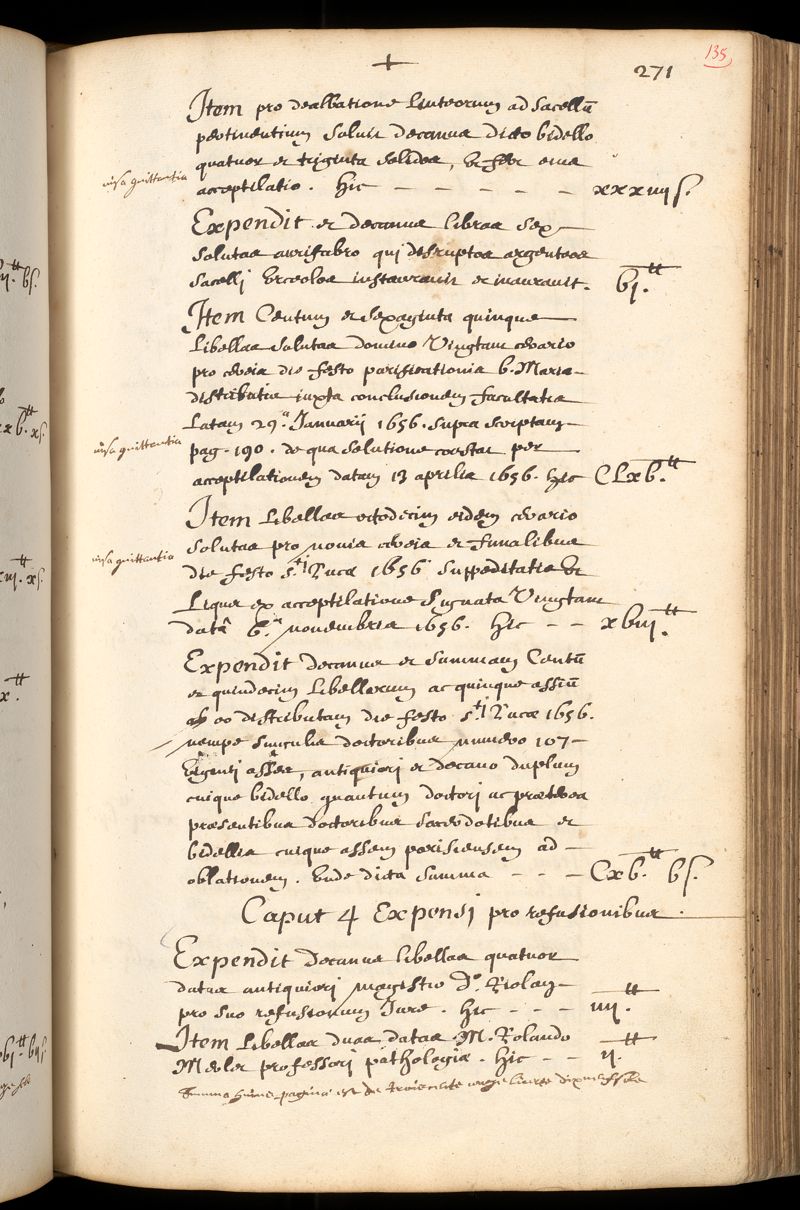 135
271
Item pro dealbatione linteorum ad sacellū
pertinentium soluit decanus dicto bidello
quatuor et triginta solidos, ut fert eius
visa quittantia
acceptilatio. hic — — — — — xxxiiij s.
Expendit et decanus libras sex
solutas aurifabro qui disruptos argenteos
sacelli urceolos instauravit et inauravit. vj.tt
Item Centum et sexaginta quinque
libellas solutas domino Vingtain cerario
pro cereis die festo purificationis b. Mariæ
distributis iuxta conclusionem facultatis
latam 29.a Januarij 1656. supra scriptam
visa quittantia
pag. 190. de qua solutione constat per
acceptilationem datam 13 aprilis 1656. hic CLxv.tt
Item libellas octodecim eidem cerario
visa quittantia
solutas pro novis cereis et funalibus
die festo sti Lucæ 1656 suppeditatis ut
liquet ex acceptilatione signata Vingtain
datâ 6.a novembris 1656. hic — — xviij.tt
Expendit decanus et summam Centū
et quindecim libellorum ac quinque assiū
ab eo distributam die festo sti Lucæ 1656.
nempe singulis doctoribus numero 107
viginti asses, antiquiori et decano duplum
cuique bidello quantum doctori ac præterea
præsentibus doctoribus sacerdotibus et
bidellis cuique assem parisiensem ad
oblationem. unde dicta summa — — — Cxv.tt v s.
Caput 4 Expensi pro refusionibus.
Expendit decanus libellas quatuor
datas antiquiori magistro D.o Riolan
pro suo refusionum Jure. hic — — — iiij.tt
Item libellas duas datas M. Rolando
Merlet professori pathologiæ. hic — — ij.tt
Summa huius paginæ est de